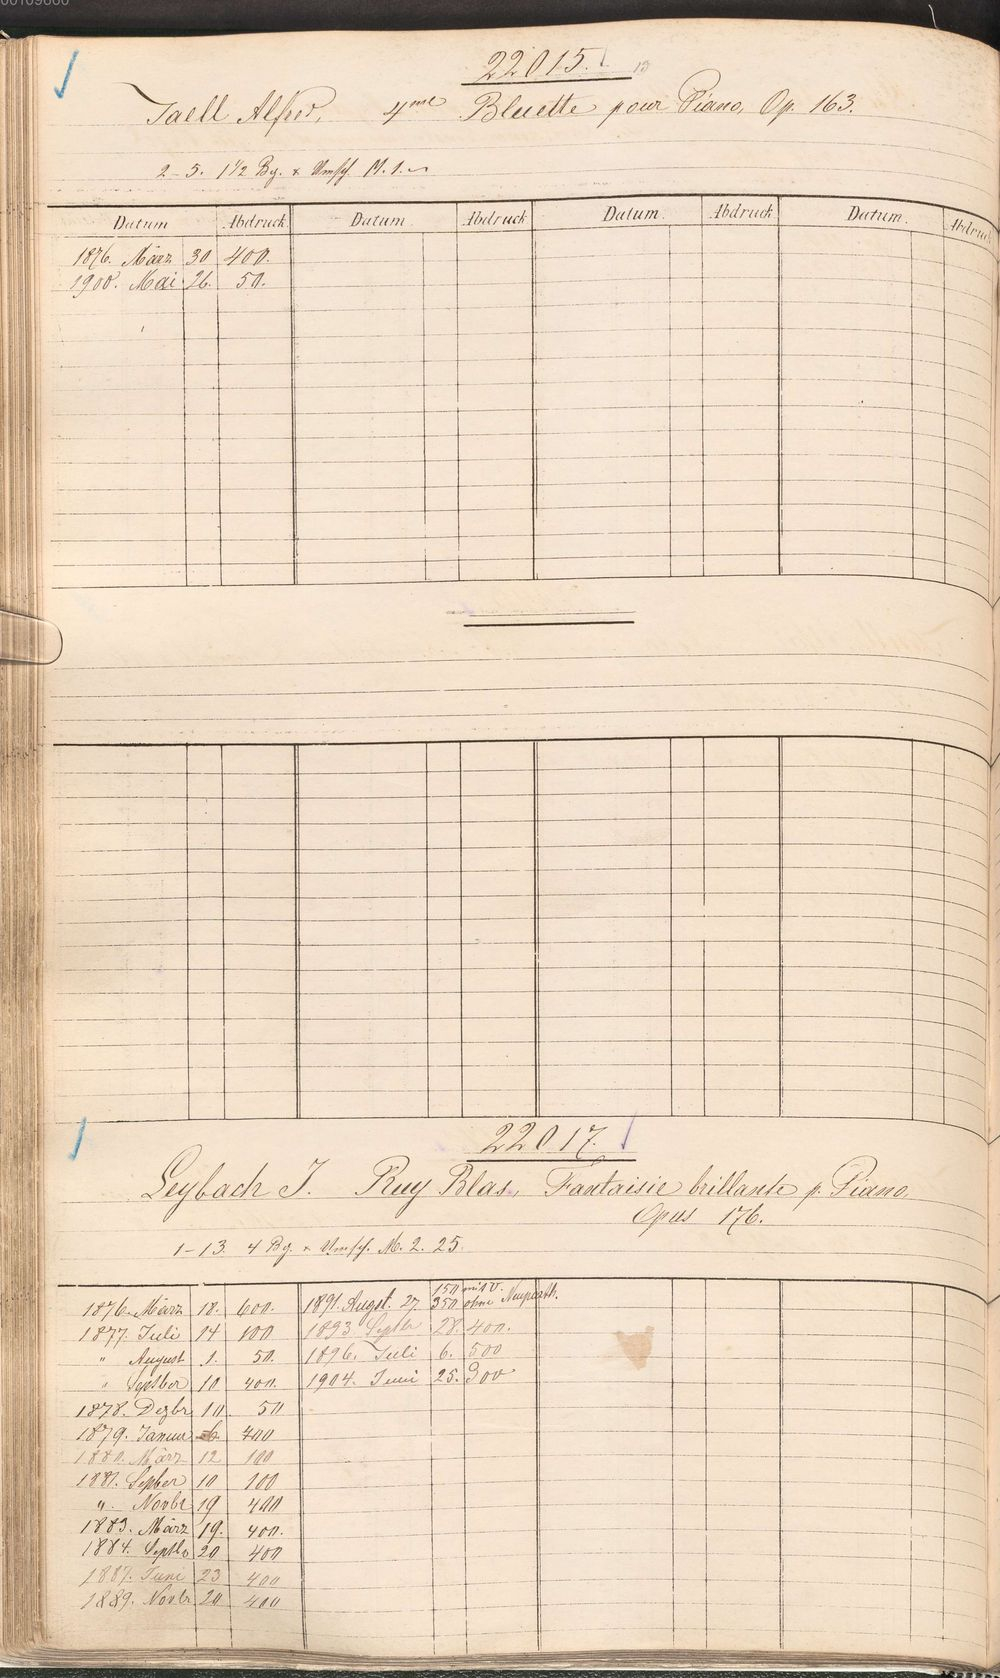 22015. 13
Jaell Alfred, 4me Bluette pour Piano, Op. 163.
2-5. 1 1/2 Bg. + Umsch. M. 1.
Datum Abdruck Datum Abdruck Datum. Abdruck Datum. Abdruck
1876. März 30 400.
1900. Mai 26. 50.
22017.
Leybach J. Ruy Blas, Fantaisie brillante p. Piano.
Opus 176.
1-13. 4 Bg. + Umsch. M. 2. 25.
1876. März 18. 600. 1891. Augst. 27. 150 mit V. 350 ohne Neuparth.
1877. Juli 14 100 1893 Septbr 28. 400.
" August 1. 50. 1896. Juli 6. 500
" Septber 10 400. 1904. Juni 25. 300
1878. Dezbr 10 50
1879. Januar 400
1880. März 12 100
1881. Septber 10 100
". Novbr 19 400
1883. März 19. 400.
1884. Septbr 20 400
1887. Juni 23 400
1889. Novbr. 20 400